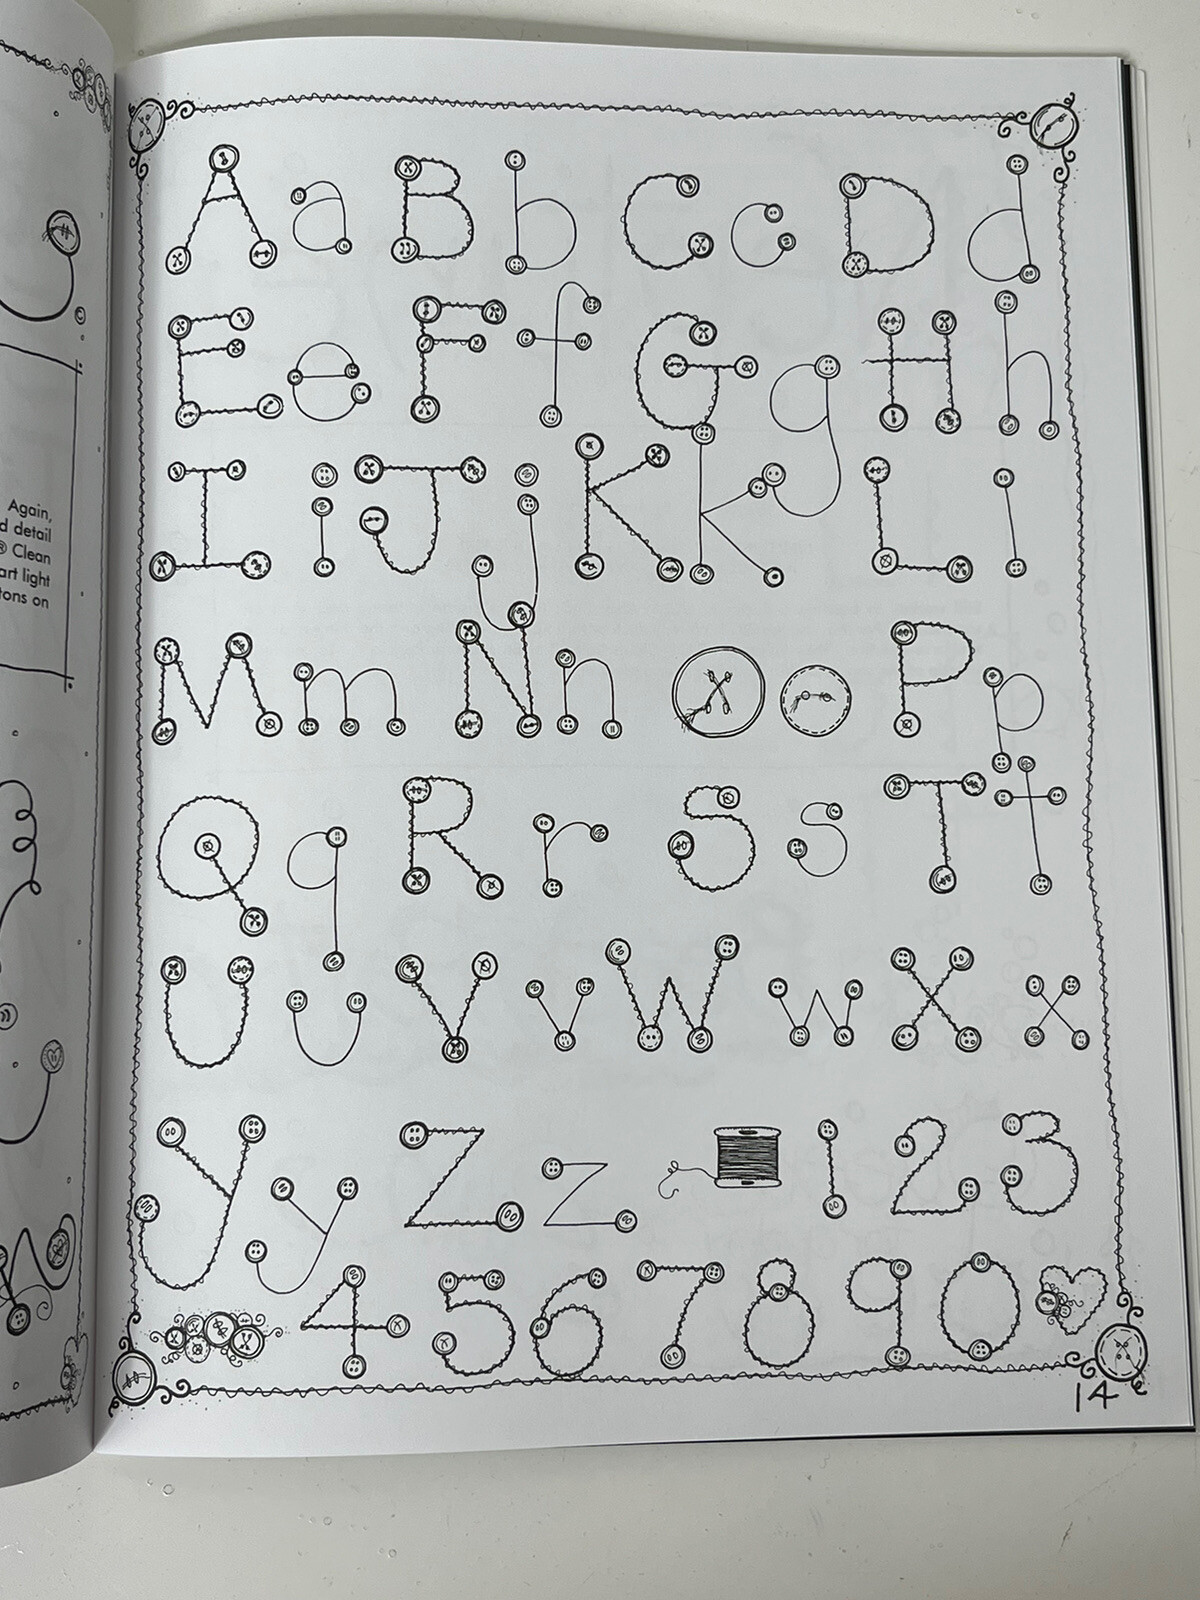 Again,
d detail
® Clean
art light
tons on
A a B b C c D d
E e F f G g H h
I i J j K k L l
M m N n O o P p
Q q R r S s T t
U u V v W w X x
Y y Z z 1 2 3
4 5 6 7 8 9 0
14